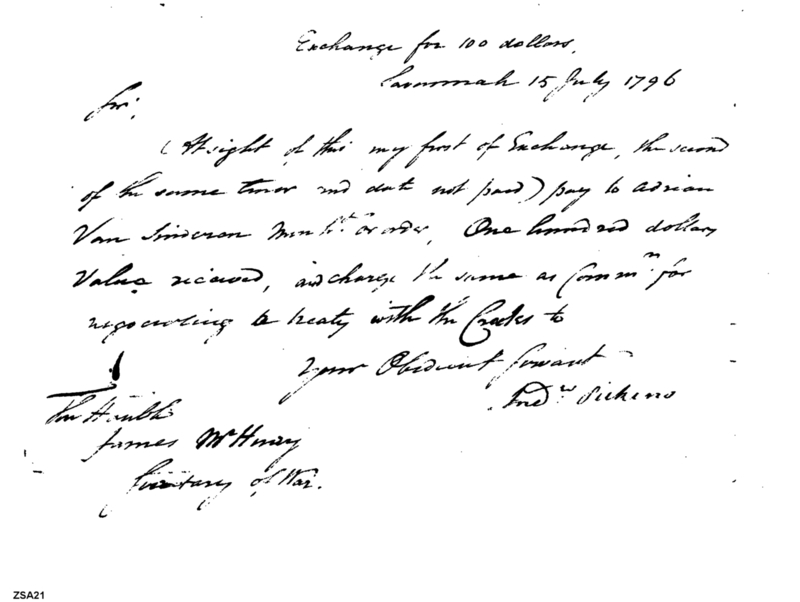 Exchange for 100 dollars.
Savannah 15 July 1796
Sir,
(At sight of this my first of Exchange, the second
of the same tenor and date not paid) pay to Adrian
Van Sinderen or order, One hundred dollars
Value received, and charge the same as Commrs for
negociating a treaty with the Creeks to
Your Obedient Servant
Andw Pickens
The Honble
James McHenry
Secretary of War.
ZSA21